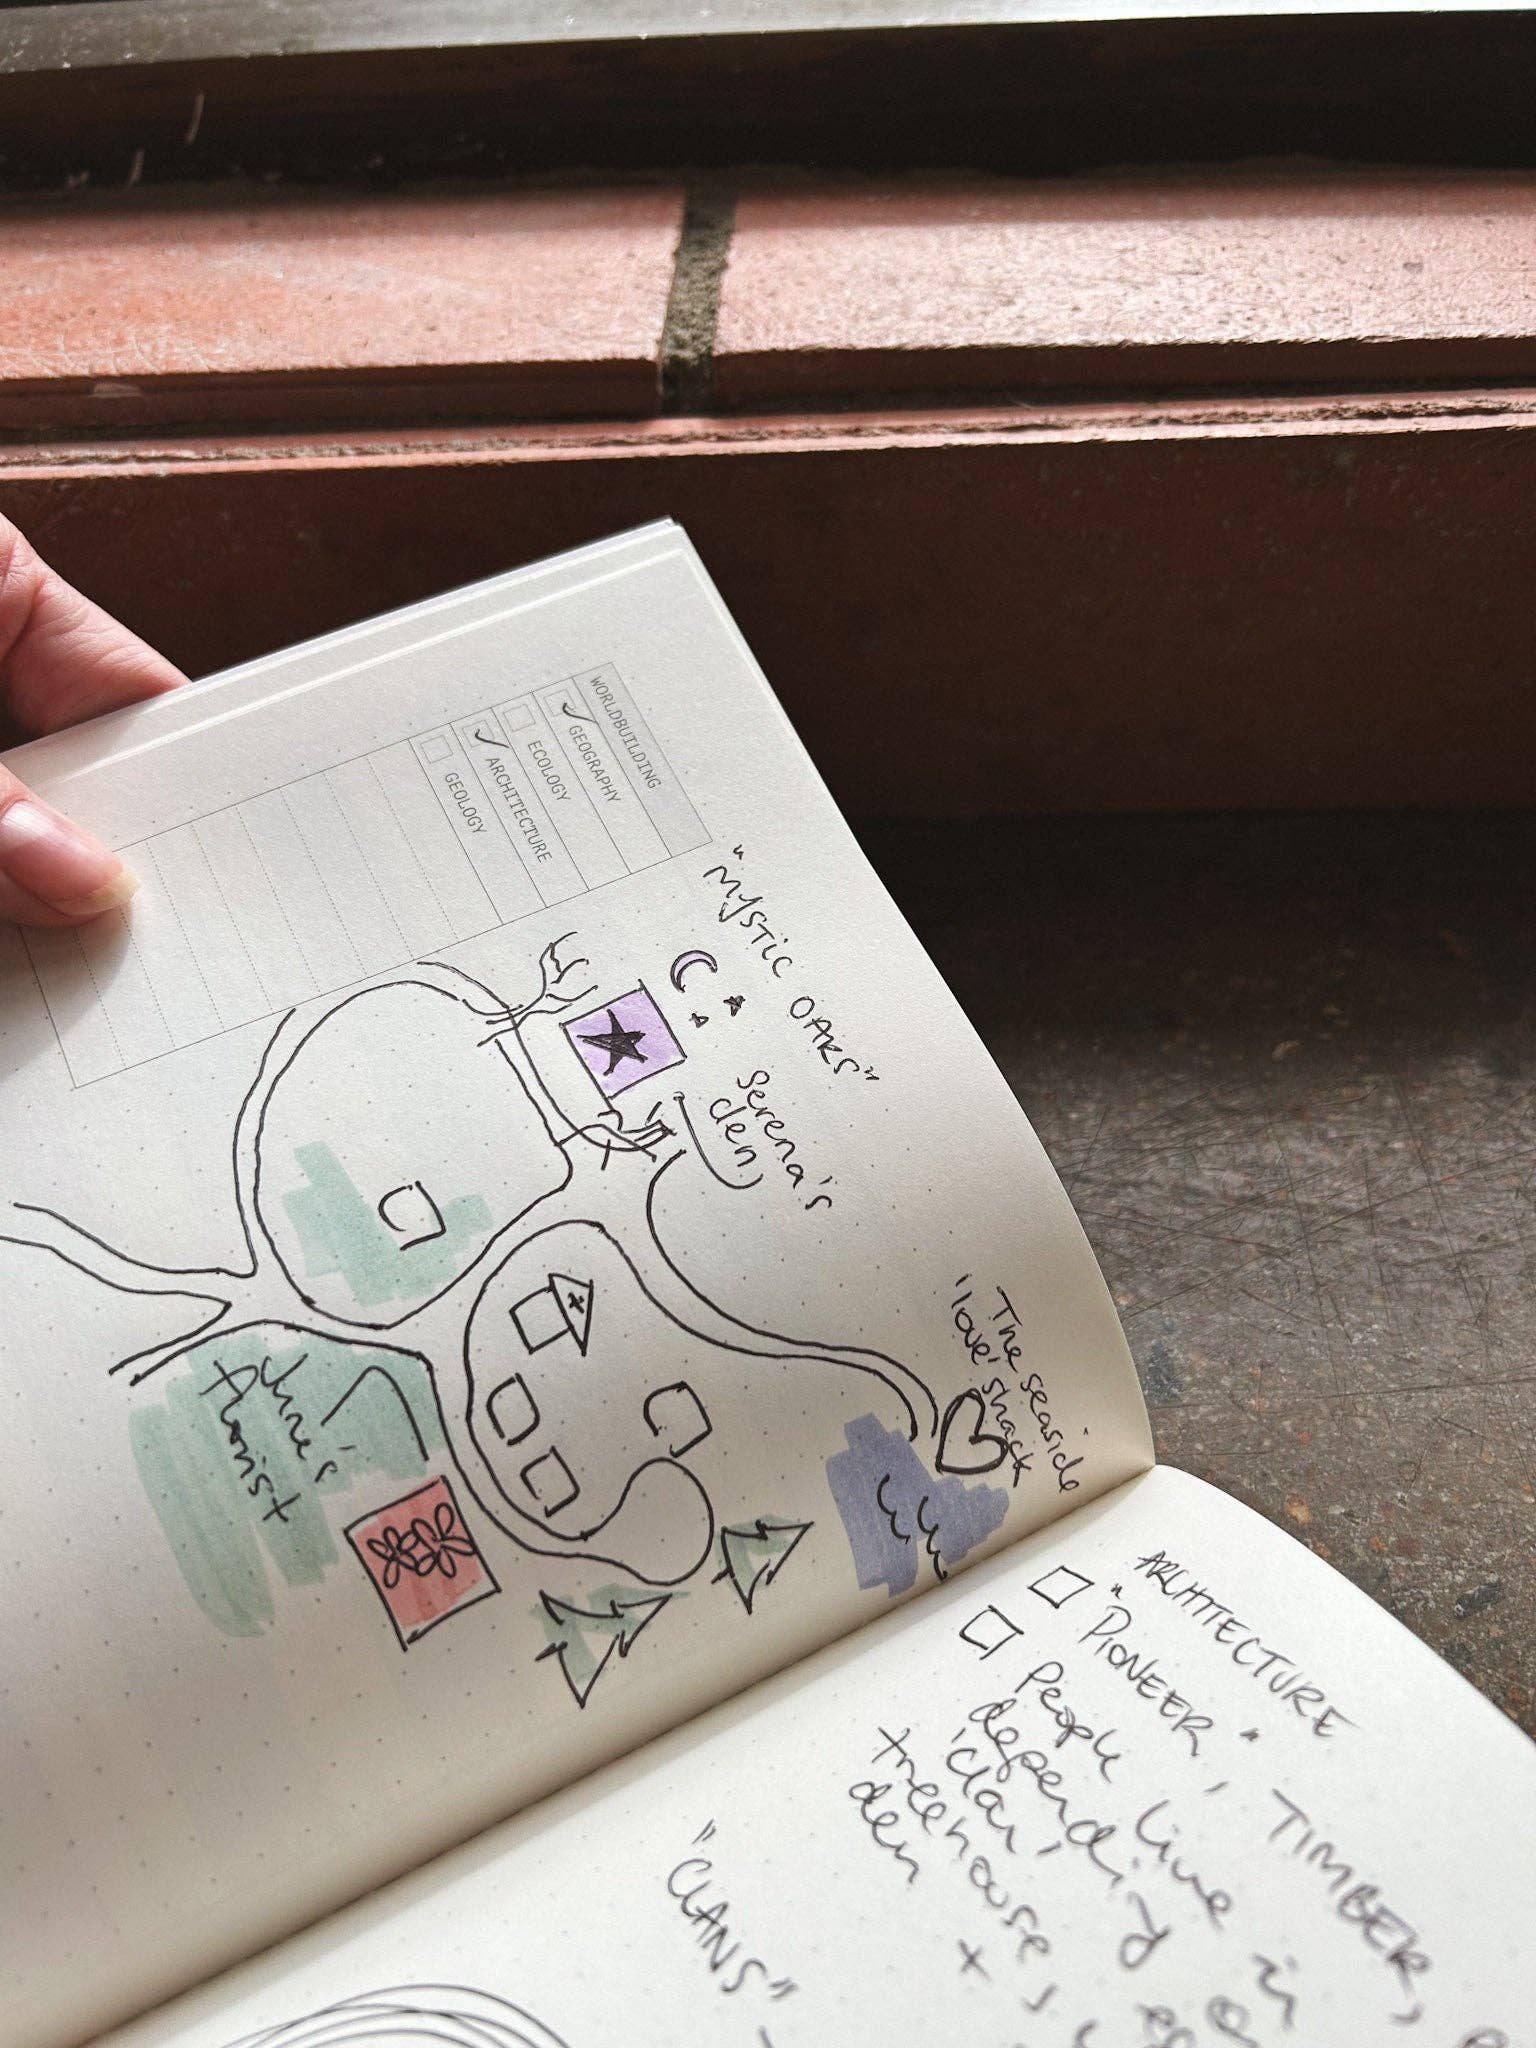 WORLDBUILDING
GEOGRAPHY
ECOLOGY
ARCHITECTURE
GEOLOGY
"MYSTIC OAKS"
Serena's
den
The seaside
'love' shack
June's
florist
ARCHITECTURE
"PIONEER", TIMBER,
People live in
depending
'clan',
treehouse,
den +
"CLANS"